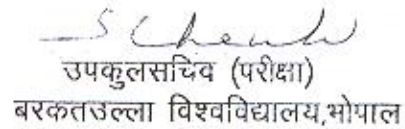 उपकुलसचिव (परीक्षा)
बरकतउल्ला विश्वविद्यालय,भोपाल